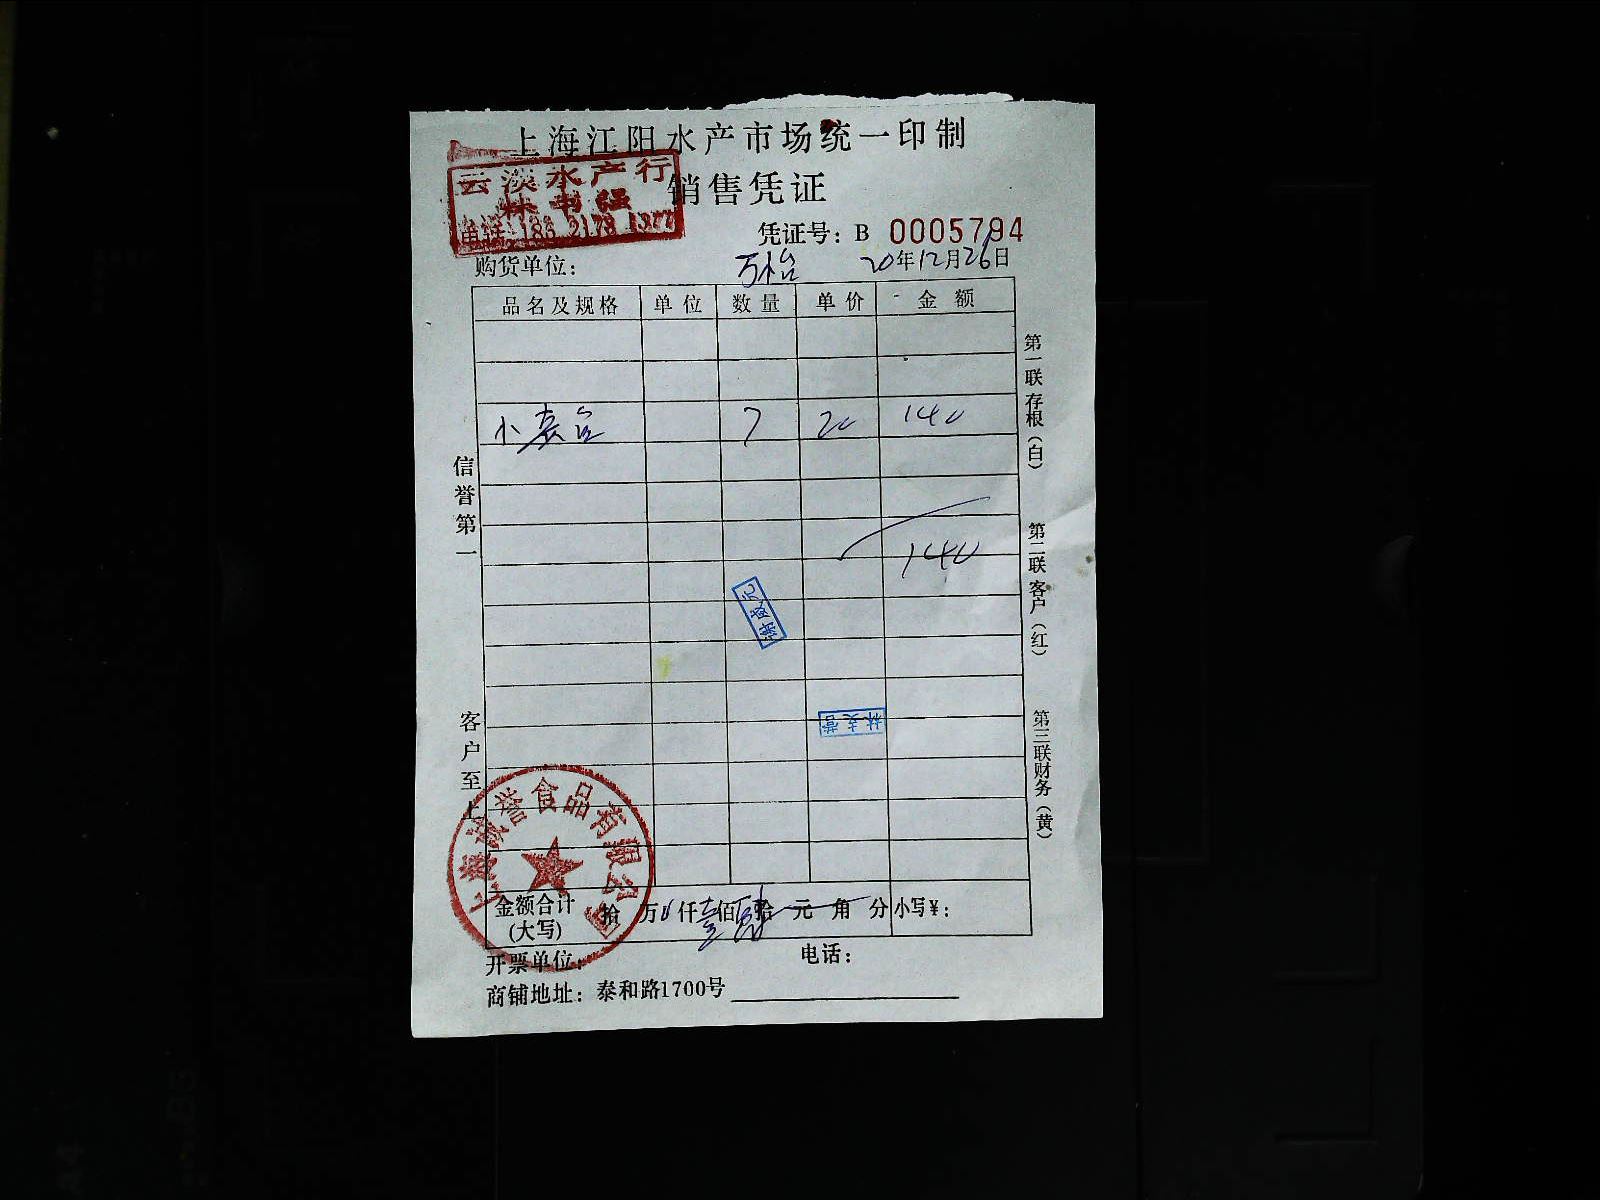 上海江阳水产市场统一印制
云淡水产行
林书强
电话:186 2179 1377
销售凭证
凭证号：B 0005794
购货单位： 万怡 20年12月26日
品名及规格 单位 数量 单价 金额
7 20 140
140
谢威元
林支营
信誉第一
客户至上
第一联 存根（白）
第二联 客户（红）
第三联 财务（黄）
诚誉食品有限公司
金额合计(大写) 拾 万 仟壹佰肆拾 元 角 分 小写¥：
开票单位： 电话：
商铺地址：泰和路1700号